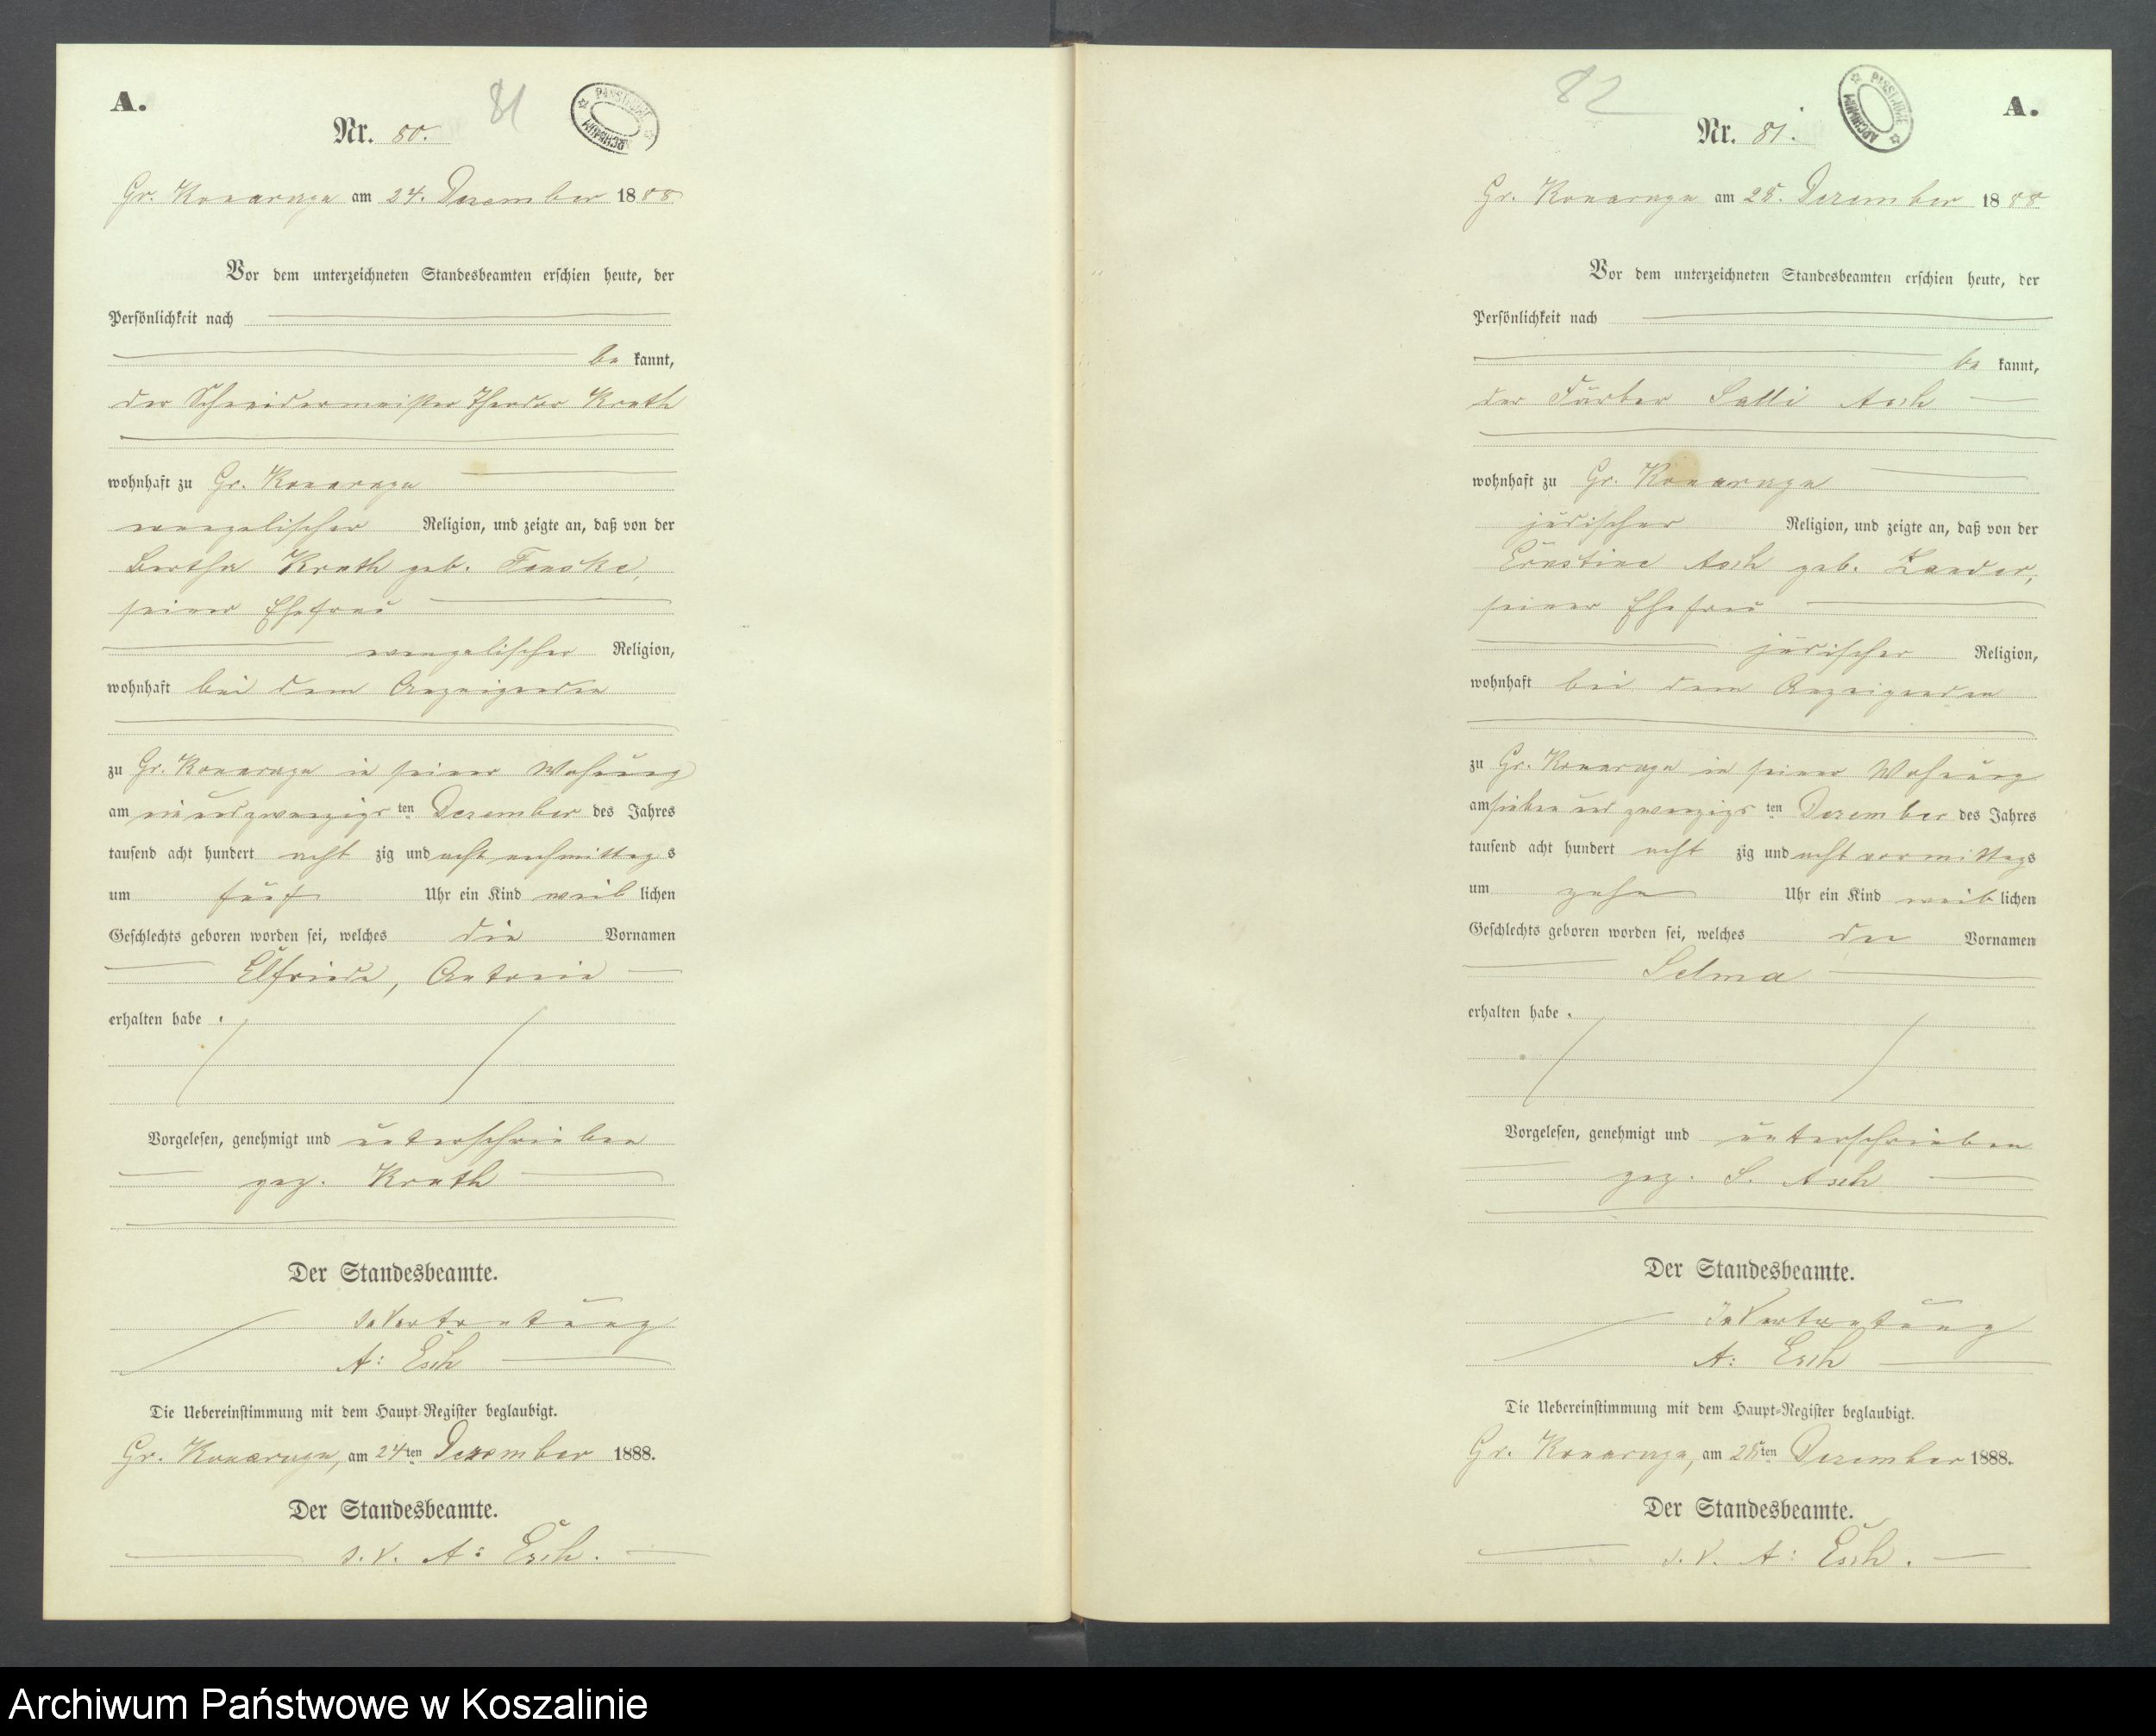 A.
81
PAŃSTWOWE ARCHIWUM
Nr. 80.
Gr. Konarzyn am 24. Dezember 1888
Vor dem unterzeichneten Standesbeamten erschien heute, der
Persönlichkeit nach
be kannt,
der Schneidermeister Theodor Krath
wohnhaft zu Gr. Konarzyn
evangelischer Religion, und zeigte an, daß von der
Bertha Krath geb. Fenske,
seiner Ehefrau
evangelischer Religion,
wohnhaft bei dem Anzeigenden
zu Gr. Konarzyn in seiner Wohnung
am ein und zwanzigsten Dezember des Jahres
tausend acht hundert acht zig und acht nachmittags
um fünf Uhr ein Kind weib lichen
Geschlechts geboren worden sei, welches die Vornamen
Elfriede, Antonie
erhalten habe.
Vorgelesen, genehmigt und unterschrieben
gez. Krath
Der Standesbeamte.
In Vertretung
A: Esch
Die Uebereinstimmung mit dem Haupt-Register beglaubigt.
Gr. Konarzyn, am 24ten Dezember 1888.
Der Standesbeamte.
I. V. A: Esch.
82
PAŃSTWOWE ARCHIWUM
A.
Nr. 81.
Gr. Konarzyn am 28. Dezember 1888
Vor dem unterzeichneten Standesbeamten erschien heute, der
Persönlichkeit nach
be kannt,
der Färber Salli Asch
wohnhaft zu Gr. Konarzyn
jüdischer Religion, und zeigte an, daß von der
Ernstine Asch geb. Zander,
seiner Ehefrau
jüdischer Religion,
wohnhaft bei dem Anzeigenden
zu Gr. Konarzyn in seiner Wohnung
am sieben und zwanzigsten Dezember des Jahres
tausend acht hundert acht zig und acht vormittags
um zehn Uhr ein Kind weib lichen
Geschlechts geboren worden sei, welches den Vornamen
Selma
erhalten habe.
Vorgelesen, genehmigt und unterschrieben
gez. S. Asch
Der Standesbeamte.
In Vertretung
A: Esch
Die Uebereinstimmung mit dem Haupt-Register beglaubigt.
Gr. Konarzyn, am 28ten Dezember 1888.
Der Standesbeamte.
I. V. A: Esch.
Archiwum Państwowe w Koszalinie